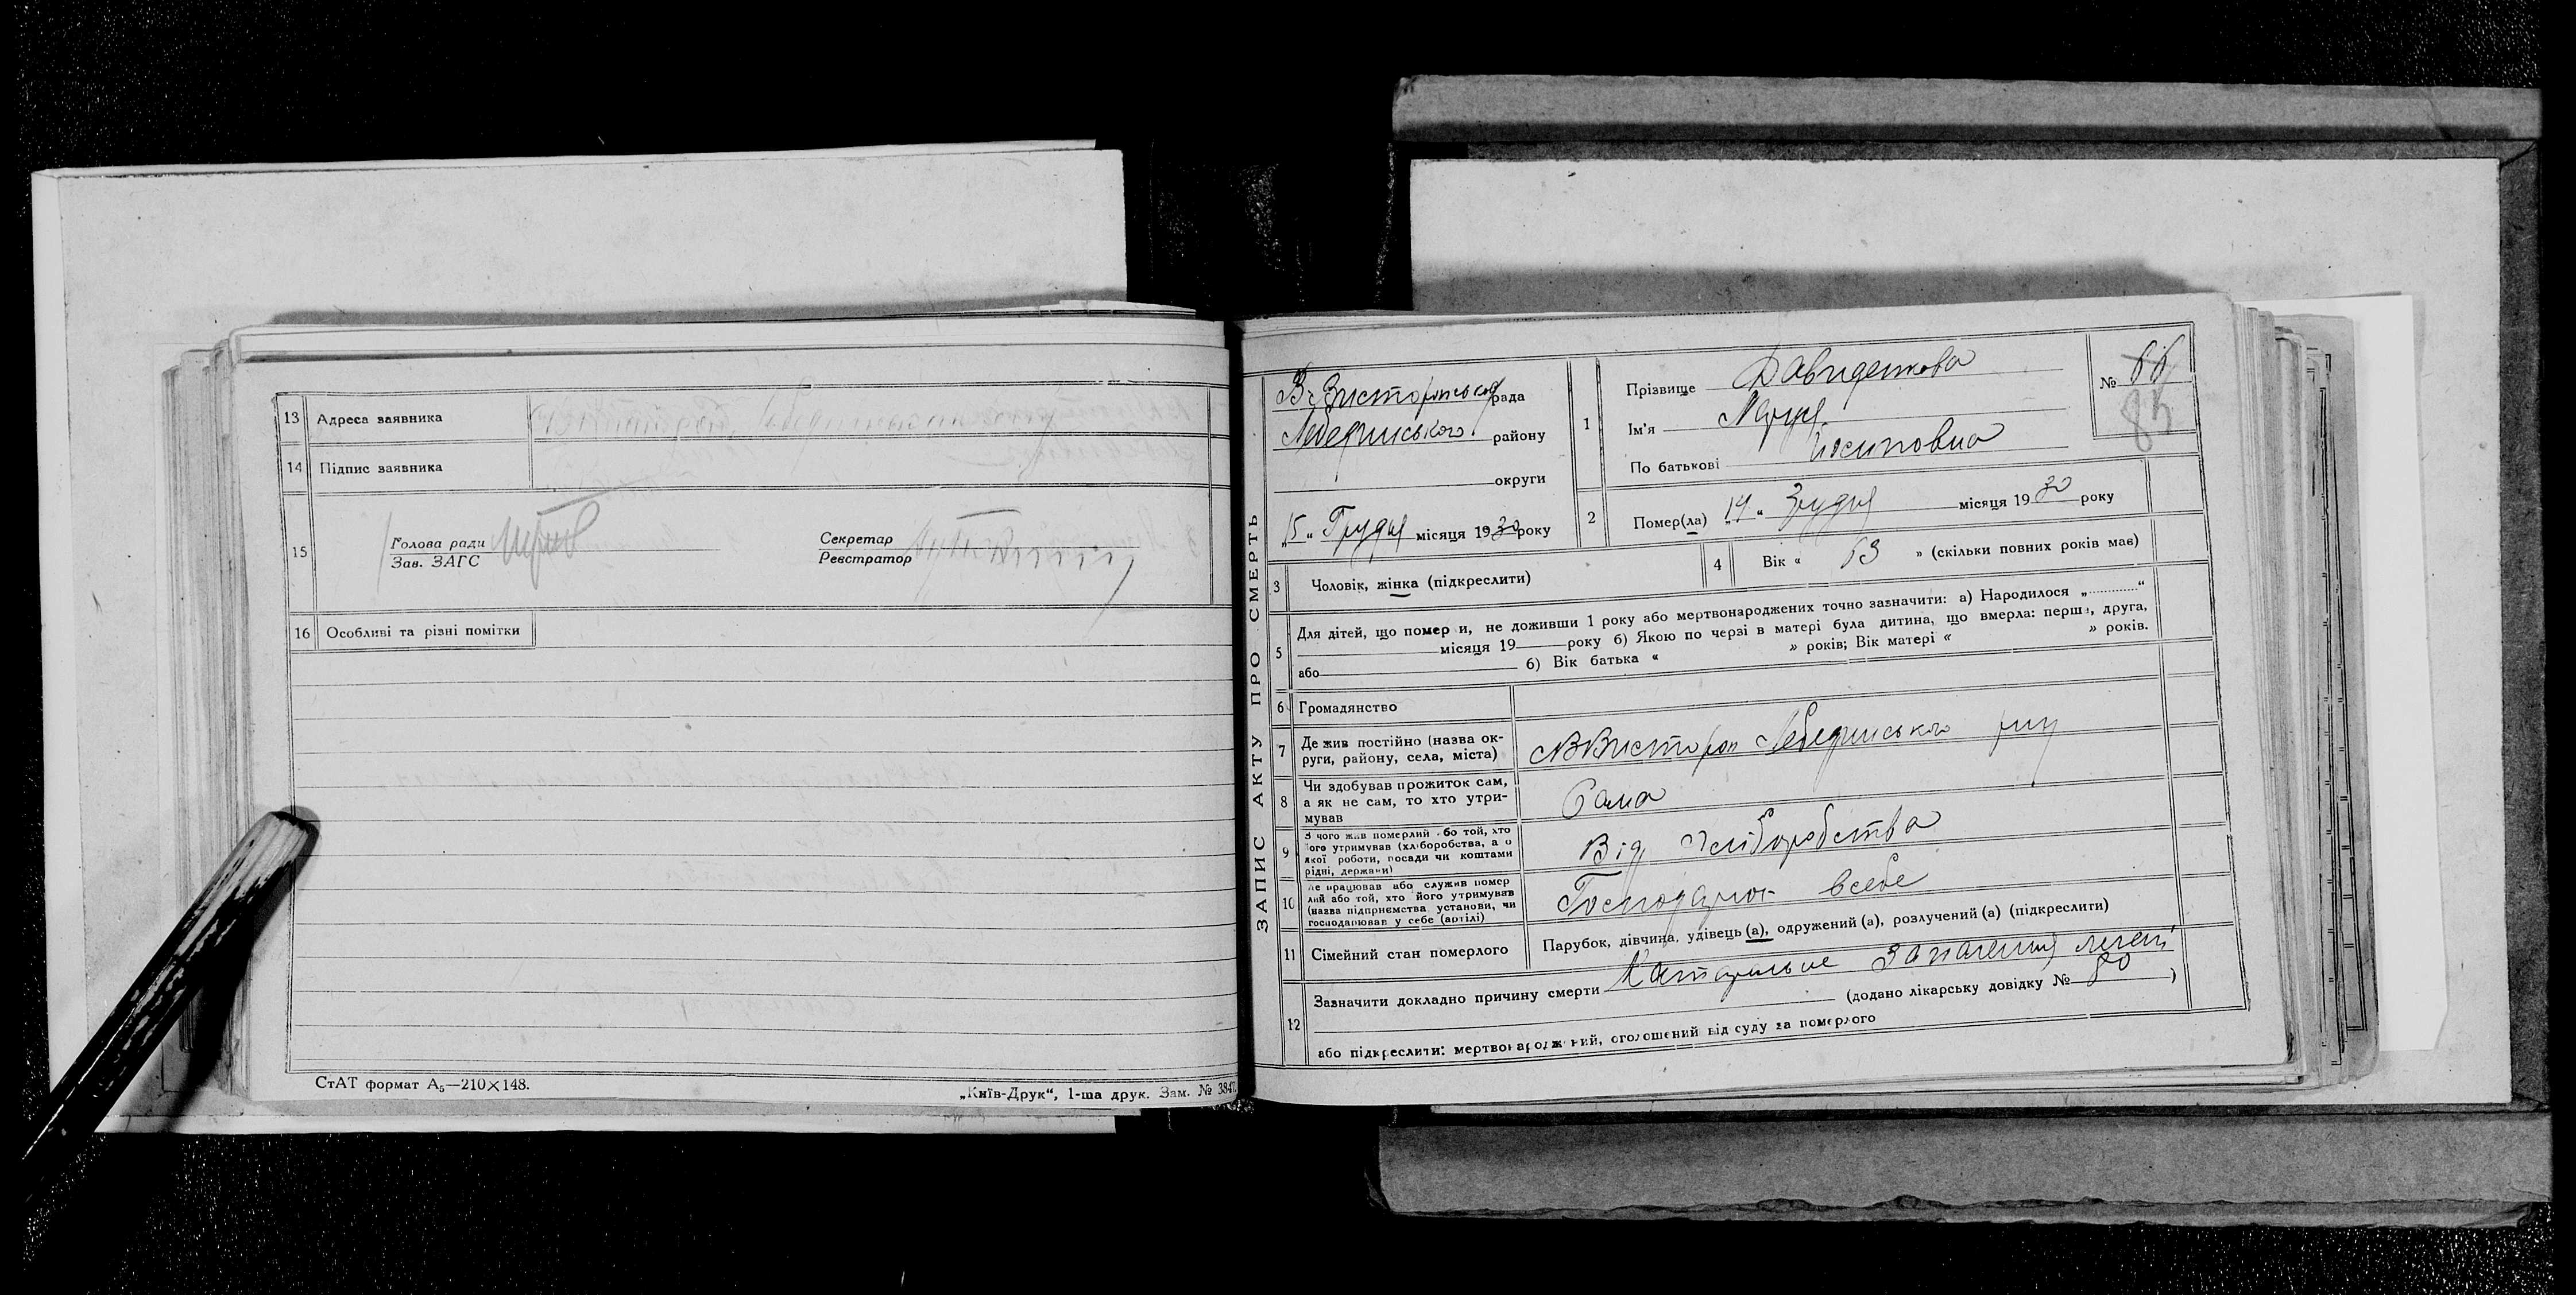 13 Адреса заявника
14 Підпис заявника
15
Голова ради
Зав. ЗАГС
Секретар
Реєстратор
16 Особливі та різні помітки
СтАТ формат А₅—210×148.
„Київ-Друк“, 1-ша друк. Зам. № 3847
ЗАПИС АКТУ ПРО СМЕРТЬ
рада
Лебединського району
округи
„15“ Грудня місяця 1930 року
1
Прізвище Давиденкова
Ім'я Марія
По батькові Йосиповна
№ 66
84
2 Помер(ла) „14“ Грудня місяця 1930 року
3 Чоловік, жінка (підкреслити)
4 Вік « 63 » (скільки повних років має)
5 Для дітей, що померли, не доживши 1 року або мертвонароджених точно зазначити: а) Народилося „............“
місяця 19 року б) Якою по черзі в матері була дитина, що вмерла: перша, друга,
або б) Вік батька « » років; Вік матері « » років.
6 Громадянство
7 Де жив постійно (назва ок-
руги, району, села, міста)
Лебединського р-ну
8 Чи здобував прожиток сам,
а як не сам, то хто утри-
мував
Сама
9 З чого жив померлий або той, хто
його утримував (хліборобства, а о
якої роботи, посади чи коштами
рідні, держави)
Від Хліборобства
10 Де працював або служив помер
лий або той, хто його утримував
(назва підприємства установи, чи
господарював у себе (артілі)
Господарює всебе
11 Сімейний стан померлого
Парубок, дівчина, удівець (а), одружений (а), розлучений (а) (підкреслити)
12 Зазначити докладно причину смерти Катаральне Запалення легень
(додано лікарську довідку № 80 )
або підкреслити: мертвонароджений, оголошений від суду за померлого